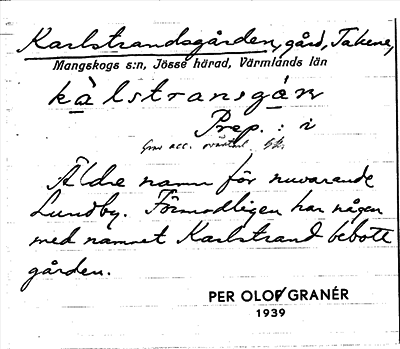 Karlstrandsgården, gård, Takene,
Mangskogs s:n, Jösse härad, Värmlands län
kàlstransgán
Prep. : i
Grav acc.
Äldre namn för nuvarande
Lundby. Förmodligen har någon
med namnet Karlstrand bebott
gården.
PER OLOF GRANÉR
1939